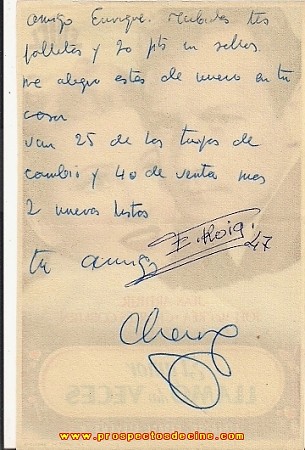 amigo Enrique. recibidos tus
folletos y 20 pts en sellos.
me alegro estes de nuevo en tu
casa
van 25 de las tuyas de
cambio y 40 de ventas mas
2 nuevas listas
tu amigo
E. Roig
47
LLAMA VECES
www.prospectosdecine.com